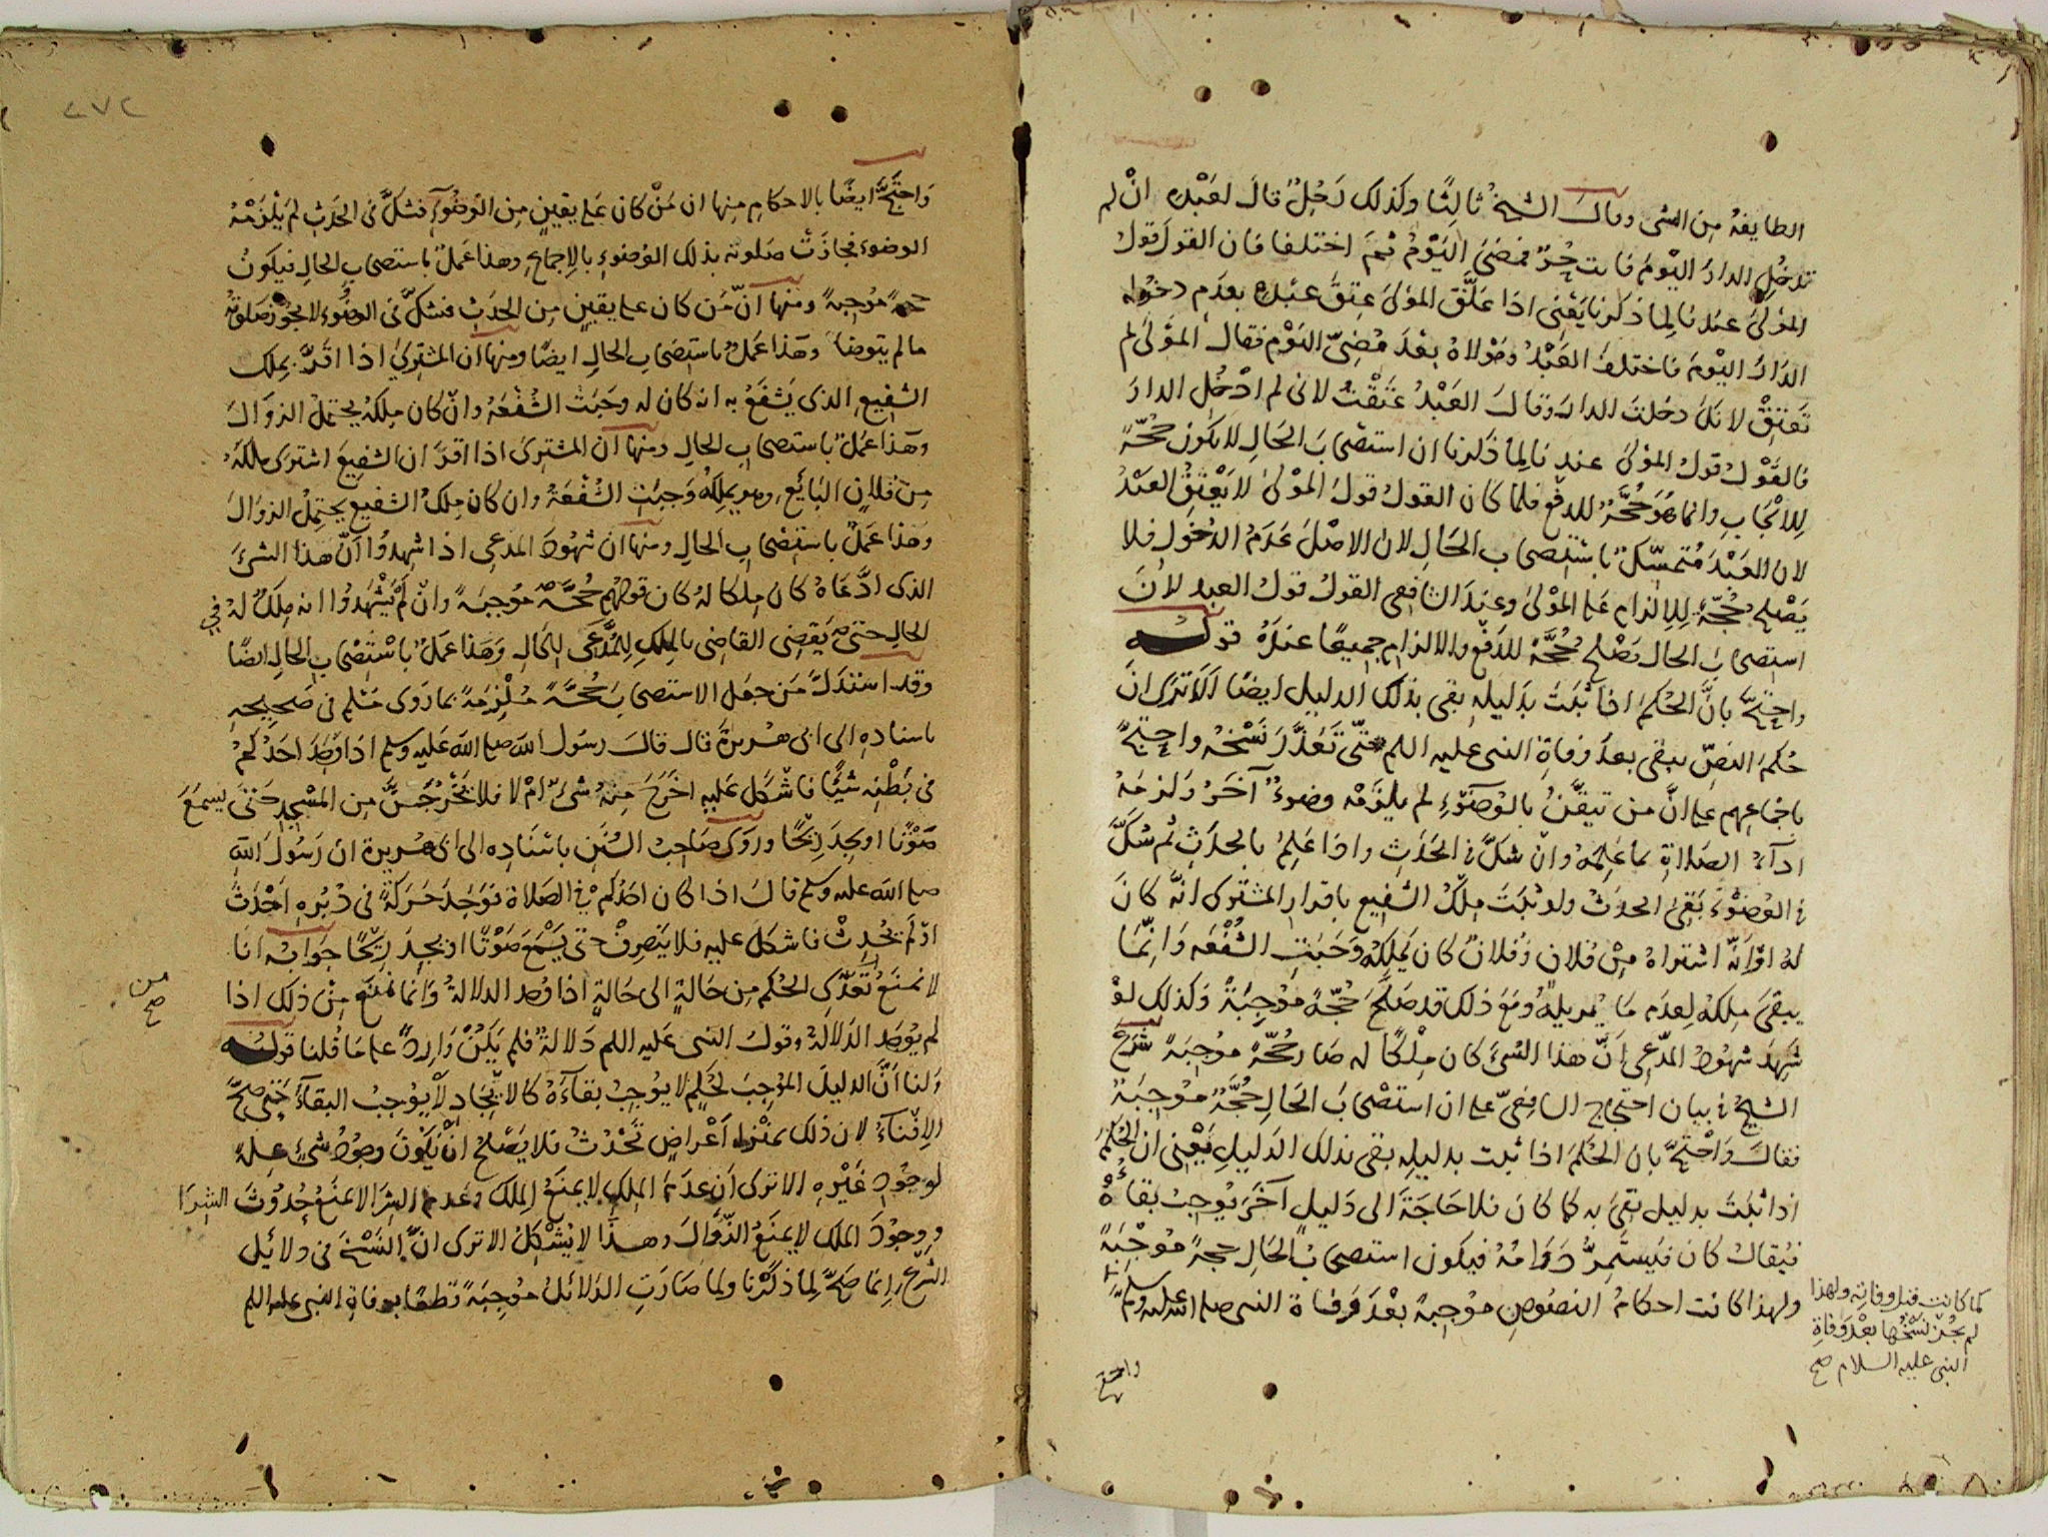 الطايفة من الشى وقال الشيخ ثالثًا وكذلك رَجُلٌ قال لعَبْده انْ لم
تدخُلِ الدارَ اليَوْمَ فانت حُرٌّ فمضى اليَوْمُ ثم اختلفا فان القولَ قولُ
المولى عندنا لما ذكرنا يَعْنى اذا عَلَّقَ المَوْلى عِتْقَ عَبْده بعَدَمِ دخوله
الدارَ اليَوْمَ فاختلف العَبْدُ ومَوْلاهُ بَعْدَ مُضِىِّ اليَوْمِ فقال المَوْلى لم
تَعْتِقْ لانك دخلتَ الدارَ وقالَ العَبْدُ عَتَقْتُ لانى لم ادْخُل الدارَ
فالقَوْلُ قولُ المولى عندنا لِما ذكرنا ان استصحابَ الحَالِ لا يكون حُجّةً
لِلايْجَابِ وانما هُوَ حُجَّةٌ للدفع فلما كان القولُ قولَ المَوْلى لا يَعْتِقُ العَبْدُ
لان العَبْدَ مُتمسّكٌ باسْتِصحاب الحَالِ لان الاصْلَ عَدَمُ الدُخُولِ فلا
يَصْلح حُجّةً لِلالزام على المَوْلى وعِندَ الشافعى القولُ قولُ العبد لانَّ
استصحابَ الحال يَصْلح حُجَّةً للدَفْعِ والالزامِ جميعًا عندَهُ قوله
واحتجَّ بانَّ الحُكمَ اذا ثَبَتَ بدَليلِه بقى بذلك الدليل ايضًا الا تَرَى انَّ
حُكمَ النصّ يبقى بعدَ وفاةِ النبى عليه اللم حتّى تَعَذَّرَ نَسْخُه واحتجَّ
باجماعِهم على انَّ من تيقَّنَ بالوُضوءِ لم يلزَمْه وضوءٌ آخَرُ ولزمَهُ
ادآءُ الصَلاةِ بما عَلِمَهُ وانْ شكَّ فى الحَدَثِ واذا عَلِمَ بالحَدَثِ ثُم شكَّ
فى الوُضُوْءِ بَقِىَ الحدَثُ ولو ثبَتَ مِلْكُ الشفيع باقرار المشترى انَّه كانَ
لهُ اوْ انَّه اشتراهُ مِنْ فلان وفُلانٌ كان يَملِكُهُ وَجَبَتِ الشُفْعَه وَانَّمَا
يبقى مِلكُهُ لِعدَم مَا يُزيلُهُ ومَعَ ذلك قد صَلَحَ حُجّةً موْجِبَةً وَكذلكَ لوْ
شَهِدَ شهُودُ المدّعى انَّ هذا الشئَ كان مِلْكًا له صَار حُجّةً موْجِبَةً شرَع
الشيخُ فى بيان احتجاج الشافعىّ على ان استصحابَ الحَالِ حُجّةٌ موْجِبَة
فقالَ وَاحْتَجَّ بان الحُكمَ اذا ثبت بدليله بقى بذلك الدَليلِ يَعْنى ان الحُكمَ
اذا ثبَتَ بدليل بَقِىَ به كما كانَ فلا حَاجَةَ الى دَليلٍ آخَرَ يُوجِبُ بقاءَهُ
فبُقاكَ كان فيَسْتَمِرُّ دَوَامُهُ فيكون استصحابُ الحَالِ حجةً مُوْجِبَةً
ولهذا كانت احكامُ النصُوصِ موْجِبةً بعْدَ وَفاة النبى صلى الله عليه وسلم
كما كانت قبل وفاته ولهذا
لم يجُزْ نَسْخُها بعْد وفاةِ
النبى عليه السلام صح
واحتج
٢٧٢
وَاحتَجَّ ايضًا بالاحكام منها ان مَنْ كان على يقينٍ مِن الوُضُوءِ فشكَّ فى الحَدَثِ لم يَلْزَمْهُ
الوضوء فجازَتْ صلوته بذلك الوُضوءِ بالاِجماع وهذا عَمَلٌ باستصحابِ الحالِ فيكونُ
حجةً مُوْجِبةً ومنها انّ مَن كان على يقينٍ مِن الحَدَثِ فشكَّ فى الوُضُوءِ لا يجُوْزُ صَلَوتُهُ
ما لم يتوضأ وهَذا عَمَلٌ باستصحاب الحالِ ايضًا ومنها ان المشترىَ اذا اقرَّ بمِلك
الشفِيعِ الذى يَشْفَعُ به انه كان له وجَبَتْ الشُفْعَهُ وانْ كان مِلكُهُ يحتمِلُ الزوالَ
وهَذا عَمَلٌ باستصحابِ الحالِ ومنها ان المشترىَ اذا اقرَّ ان الشفيعَ اشترى ملكَهُ
مِنْ فلانٍ البَائع وهو يملكهُ وَجبَتْ الشُفْعَةُ وان كان مِلكُ الشفيع يحتمِلُ الزوالَ
وهَذا عَمَلٌ باستِصْحابِ الحالِ ومنها ان شهُودَ المدعى اذا شهِدُوا انَّ هذا الشئَ
الذى ادَّعَاهُ كان مِلكا لهُ كان قولهُم حُجَّةً مُوجِبَةً وانْ لم يَشْهَدُوا انه مِلكٌ لهُ فى
الحالِ حتى يَقضِى القاضى بالمِلكِ لِلمُدَّعى فى الحَالِ وَهَذا عَمَلٌ باسْتِصْحابِ الحالِ ايضًا
وقد استَدَلَّ مَن جعَل الاستصحابَ حُجَّةً مُلْزِمَةً بما رَوَى مُسْلم فى صَحِيحِه
باسنادِه الى ابى هُريرةَ قال قالَ رسُولُ الله صلى الله عَليه وسلم اذا وَجَدَ احَدُكمْ
فى بَطْنِه شيْئًا فاشْكَلَ عَليه اَخَرَجَ مِنهُ شئٌ اَمْ لا فلا يَخْرُجَنَّ مِن المَسْجِدِ حَتى يسمَعَ
صَوْتًا او يجِدَ رِيْحًا ورَوَى صَاحِبُ السُنَنِ باسْنَادِه الى ابى هُريرة ان رسُولَ اللهِ
صلى الله عليه وسلم قالَ اذا كان احَدُكم فى الصَلاةِ فوَجَدَ حَرَكةً فى دُبُره اَحْدَثَ
اوْ لَم يُحْدِثْ فاشكلَ عليه فلا يَنْصَرِفْ حتى يَسْمَعَ صَوْتًا او يجِدَ رِيْحًا جوَابُه انا
لا نمنَعُ تَعَدِّىَ الحُكم مِن حَالةٍ الى حَالةٍ اذا وُجِد الدلالةُ وَانما نَمْنَعُ مِنْ ذلِكَ اذا
من
صح
لم يُوجَدِ الدَلالةُ وقولُ النبى عَليه اللم دَلالةٌ فلم يَكُنْ وَارِدًا على ما قُلنا قوله
ولنا اَنَّ الدليلَ المُوْجِبَ لحُكمٍ لا يُوجِبُ بقآءَهُ كالايجَادِ لا يُوْجِبُ البقآءَ حَتى صحَّ
الاِفْنآءُ لان ذلك بمنْزِلة اَعْراضٍ تَحْدُثُ فلا يَصْلحُ انْ يكونَ وجودُ شئٍ عِلةً
لوجُوْدِ غَيْرِه الا ترى ان عدَمَ الملكِ لا يمنَعُ المِلكَ وعَدم الشرا لا يمنَعُ حُدُوثَ الشِرَا
وَوجُوْدَ الملكِ لا يمنَعُ الزَّوَالَ وهذا لا يُشْكِلُ الا ترى انَّ النَسْخَ فى دلائل
الشرع انما صَحَّ لِمَا ذكرْنا ولما صَارَتِ الدَلائلُ مُوجِبَةً قطعًا بوفاةِ النبى عليه اللم